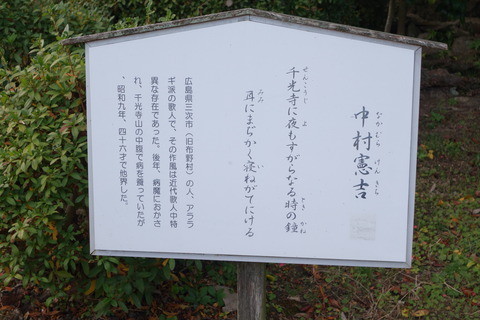 中村憲吉
なかむら・けんきち
千光寺に夜もすがらなる時の鐘
せんこうじ よ とき かね
耳にまぢかく寝ねがてにける
みみ い
広島県三次市(旧布野村)の人、アララ
ギ派の歌人で、その作風は近代歌人中特
異な存在であった。後年、病魔におかさ
れ、千光寺山の中腹で病を養っていたが
、昭和九年、四十六才で他界した。